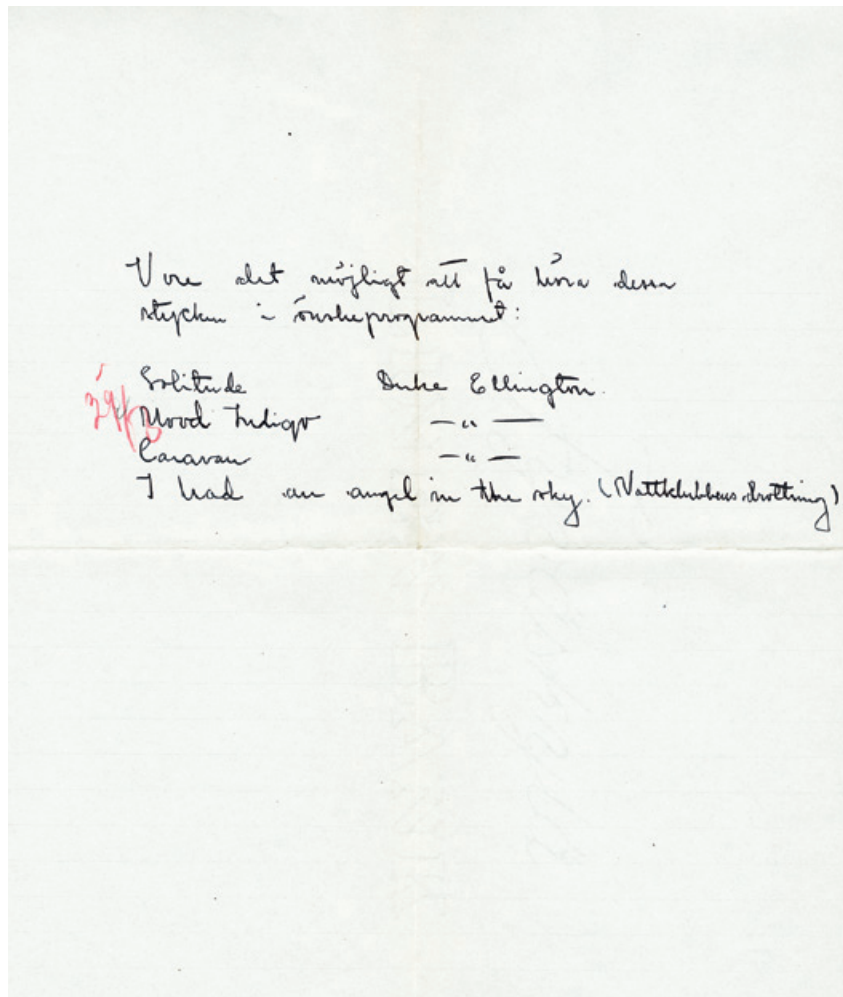 Vore det möjligt att få höra dessa
stycken i önskeprogrammet:
Solitude Duke Ellington.
Mood Indigo —"—
Caravan —"—
I had an angel in the sky. (Nattklubbens drottning)